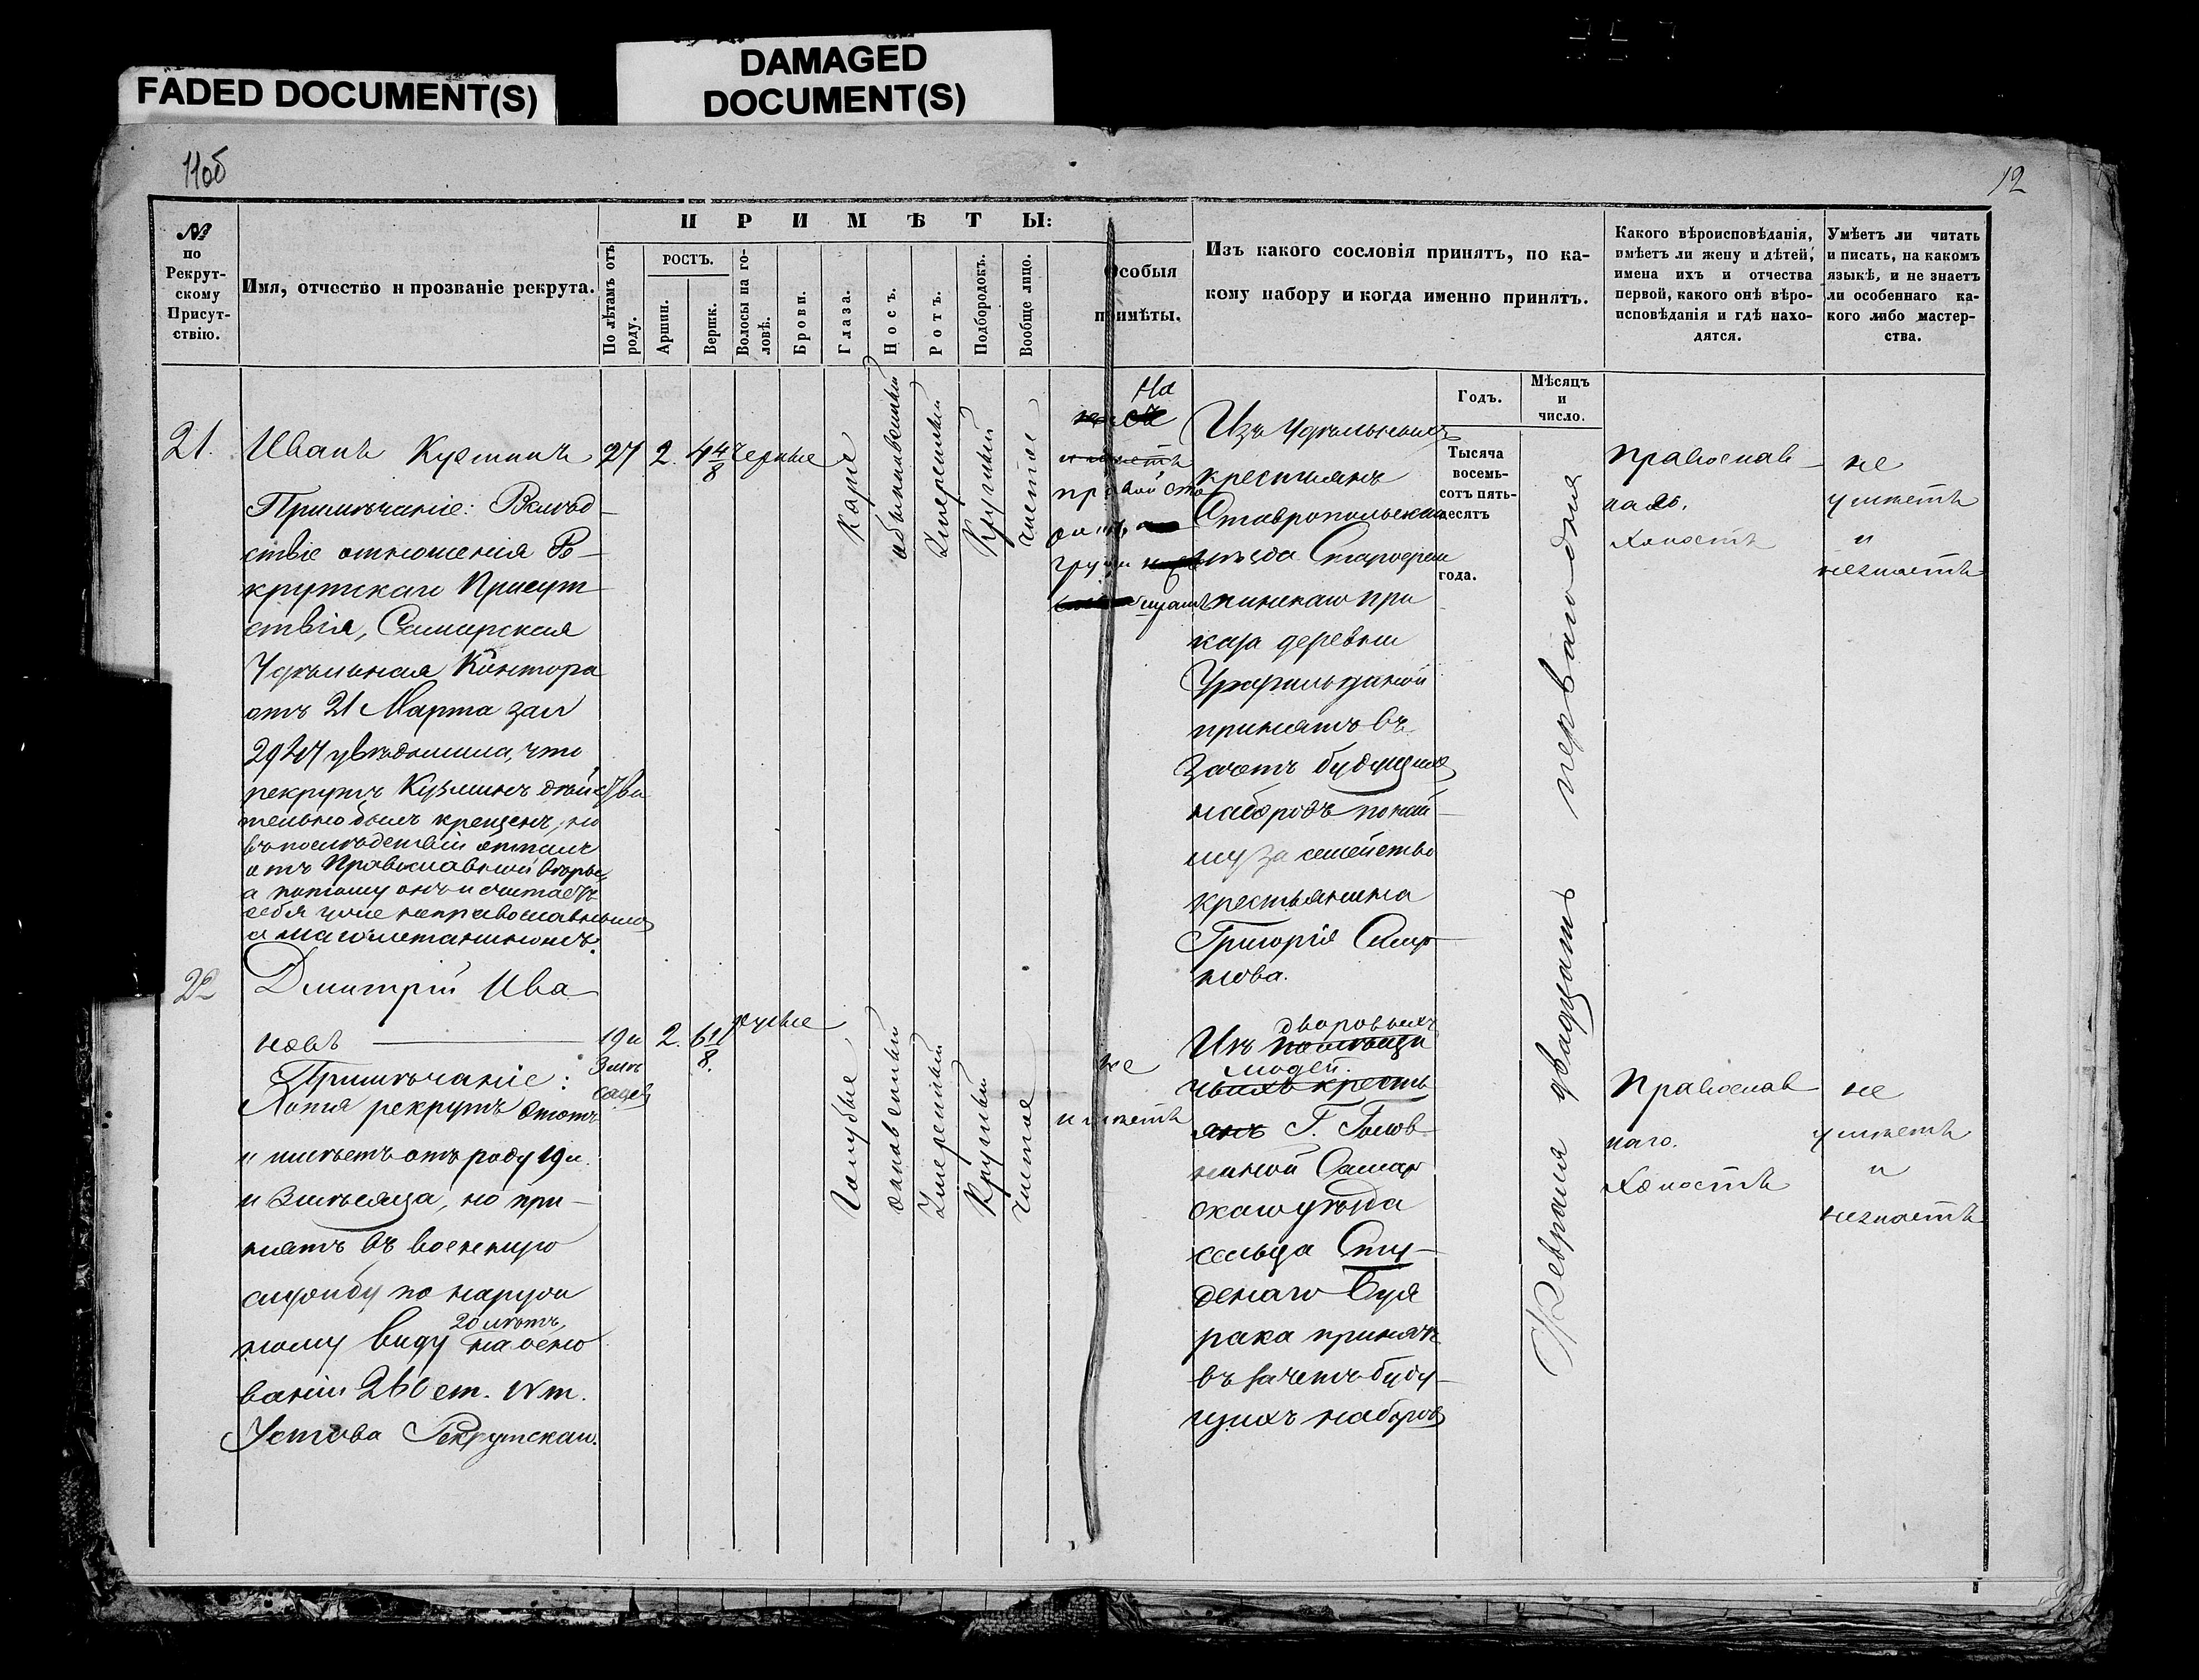 FADED DOCUMENT(S)
DAMAGED
DOCUMENT(S)
11об
12
№
по
Рекрут-
скому
Присут-
ствію.
Имя, отчество и прозваніе рекрута.
ПРИМѢТЫ:
По лѣтамъ отъ
роду.
РОСТЪ.
Аршин.
Вершк.
Волосы на го-
ловѣ.
Брови.
Глаза.
Носъ.
Ротъ.
Подбородокъ.
Вообще лицо.
Особыя
примѣты.
Изъ какого сословія принятъ, по ка-
кому набору и когда именно принятъ.
Годъ.
Мѣсяцъ
и
число.
Какого вѣроисповѣданія,
имѣетъ ли жену и дѣтей,
имена ихъ и отчества
первой, какого онѣ вѣро-
исповѣданія и гдѣ нахо-
дятся.
Умѣетъ ли читать
и писать, на какомъ
языкѣ, и не знаетъ
ли особеннаго ка-
кого либо мастер-
ства.
21.
Иванъ Кузминъ
Примѣчаніе: Вслѣд-
ствіе отношенія Ре-
крутскаго Присут-
ствія, Самарская
Удѣльная Контора
отъ 21 Марта за №
2947 увѣдомила, что
рекрутъ Кузминъ дѣйстви
тельно былъ крещенъ, но
въ послѣдствіи отпалъ
отъ Православной Вѣры,
а потому онъ и считаетъ
себя уже неправославнымъ
а магометаниномъ.
27
2.
4 4/8
черные
Каріе
обыкновенный
Умеренный
Круглый
чистое
На
имеетъ
правой сто
груди
Изъ Удѣльныхъ
крестьянъ
Ставропольскаго
уѣзда
кинскаго при
каза деревни
принятъ въ
зачетъ будущихъ
наборовъ по най-
му за семейство
крестьянина
Григорія Смир-
нова.
Тысяча
восемь-
сотъ пять-
десятъ
года.
Февраля двадцать перваго дня
Православ-
наго.
Холостъ
не
умѣетъ
и
незнаетъ
22
Дмитрій Ива
новъ
Примѣчаніе:
Хотя рекрутъ этотъ
и имѣетъ отъ роду 19 л.
и 3 мѣсяца, но при-
нятъ въ военную
службу по наруж
ному виду 20 лѣтъ на осно
ваніи 260 ст. IV т.
Устава Рекрутскаго.
19 и
3 мѣ
сяцевъ
2.
6 1/8.
русые
Голубые
обыкновенный
Умеренный
Круглый
Чистое
не
имѣетъ
Изъ дворовыхъ
помѣщи
людей.
чьихъ кресть
янъ Г. Голов
ниной Самар
скаго уѣзда
сельца Сту-
денаго Буе
рака принятъ
въ зачетъ буду-
щихъ наборовъ
Православ
наго.
Холостъ
не
умѣетъ
и
незнаетъ